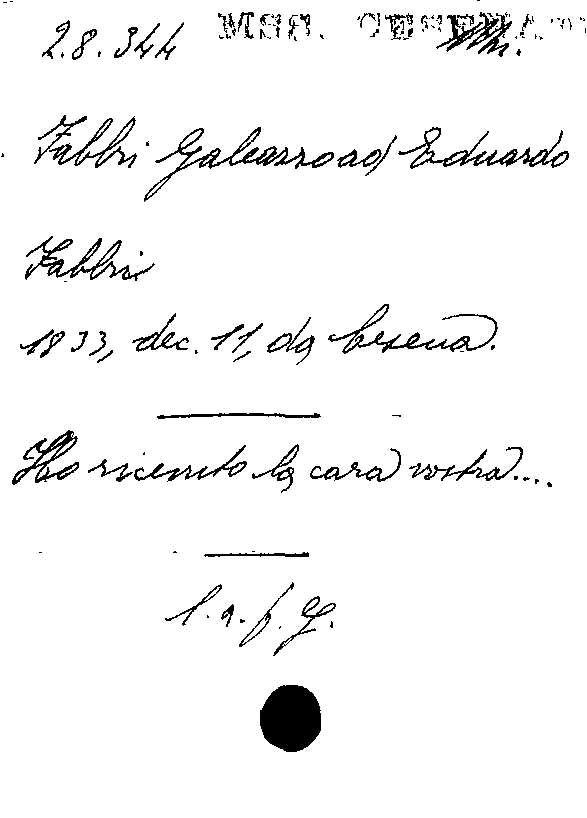 2.8.344 MSS. CESENAT
Fabbri Galeazzo ad Eduardo
Fabbri
1833, dec. 11, da Cesena.
Ho ricevuto la cara vostra....
l. a. f. G.